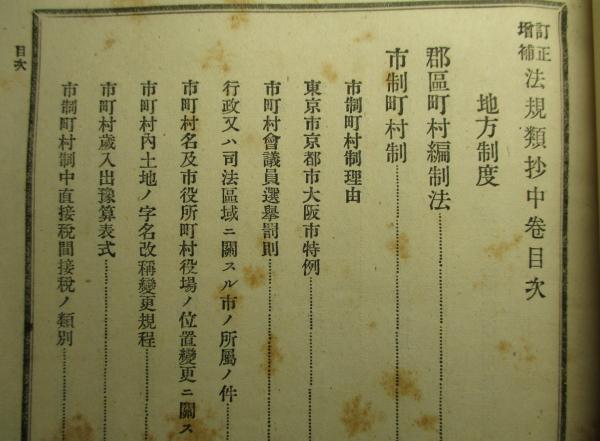 訂正増補法規類抄中卷目次
地方制度
郡區町村編制法
市制町村制
市制町村制理由
東京市京都市大阪市特例
市町村會議員選擧罰則
行政又ハ司法區域ニ關スル市ノ所屬ノ件
市町村名及市役所町村役場ノ位置變更ニ關ス
市町村內土地ノ字名改稱變更規程
市町村歲入出豫算表式
市制町村制中直接稅間接稅ノ類別
目次